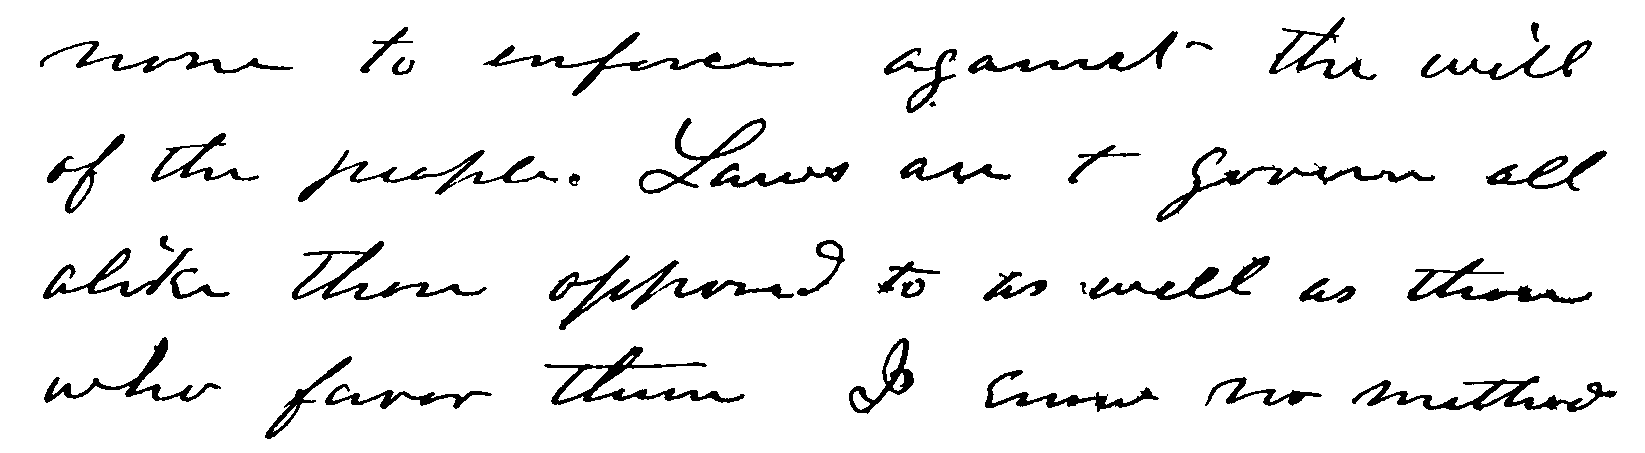 none to enforce against the will
of the people. Laws are to govern all
alike those opposed to as well as those
who favor them I know no method